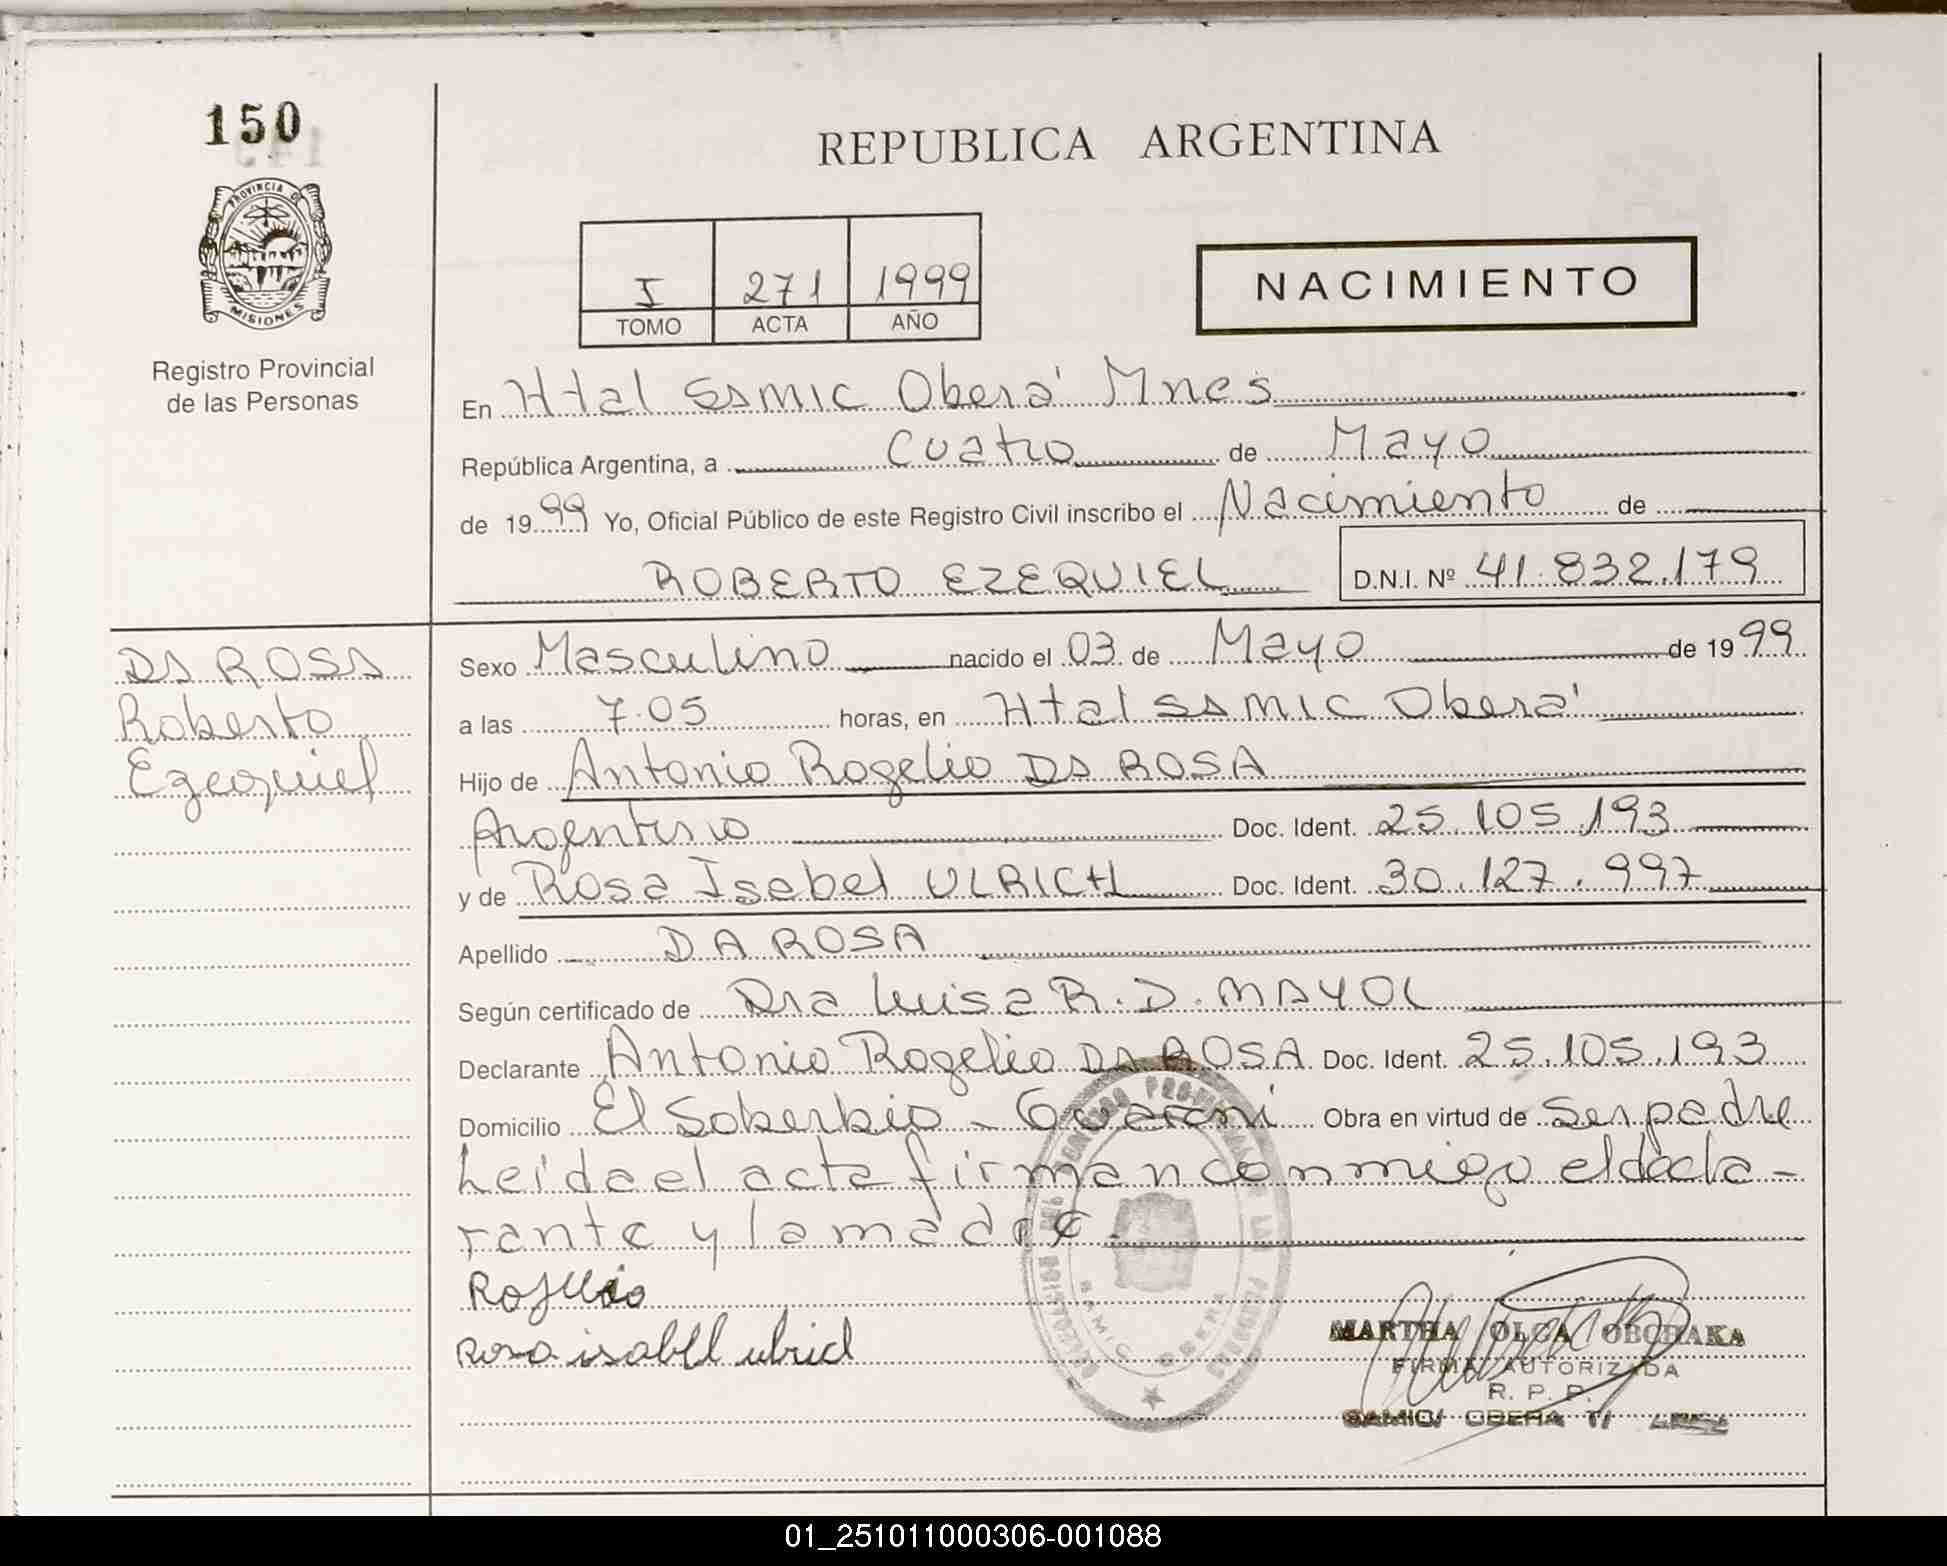 150
PROVINCIA D
MISIONES
Registro Provincial
de las Personas
REPUBLICA ARGENTINA
I 271 1999
TOMO ACTA AÑO
NACIMIENTO
En Htal SAMIC Oberá Mnes
República Argentina, a Cuatro de Mayo
de 1999 Yo, Oficial Público de este Registro Civil inscribo el Nacimiento de
ROBERTO EZEQUIEL D.N.I. Nº 41.832.179
DA ROSA
Roberto
Ezequiel
Sexo Masculino nacido el 03 de Mayo de 1999
a las 7.05 horas, en Htal SAMIC Oberá
Hijo de Antonio Rogelio DA ROSA
Argentino Doc. Ident. 25.105.193
y de Rosa Isabel ULRICH Doc. Ident. 30.127.997
Apellido DA ROSA
Según certificado de Dra Luisa R.D. MAYOL
Declarante Antonio Rogelio DA ROSA Doc. Ident. 25.105.193
Domicilio El Soberbio - Guarani Obra en virtud de Ser padre
Leida el acta firman conmigo el decla-
rante y la madre.
rosa isabel ulrich
MARTHA OLGA OBCHAKA
FIRMA AUTORIZADA
R. P. P.
SAMIC/ OBERA
SAMIC OBERA
01_251011000306-001088